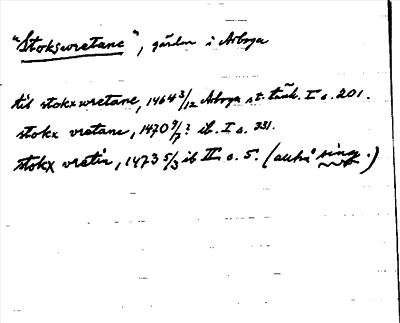 "Stokswretane", gården i Arboga
til stoksxwretane, 1464 3/12 Arboga st. tänk. I s. 201.
stokx vretane, 1470 9/7? ib. I s. 331.
stokx vretin, 1473 5/3 ib II s. 5. (alltså sing.)